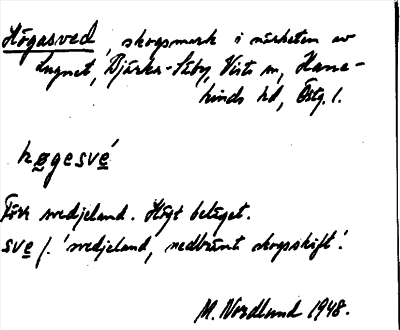 Högasved, skogsmark i närheten av
Lugnet, Bjärka-Säby, Vists sn, Hane-
kinds hd, Östg. l.
høgesvé
Förr svedjeland. Högt beläget.
sve f. 'svedjeland, nedbränt skogsskift'.
M. Nordlund 1948.